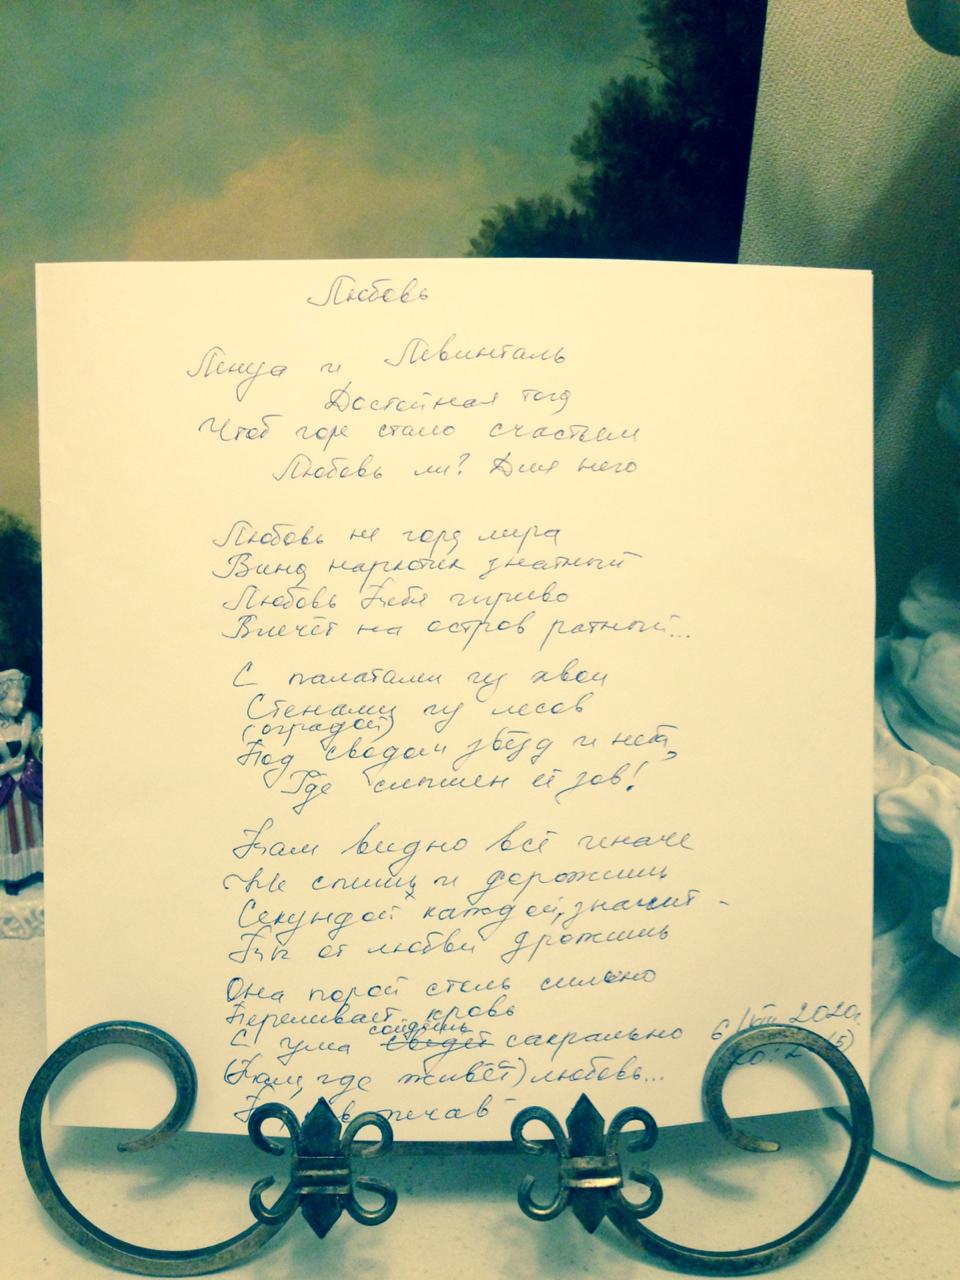 Любовь
Ленуа и Левинталь
Достойная того
Чтоб горе стало счастьем
Любовь ли? Для него
Любовь не города мира
Вино наркотик знатный
Любовь Тебя игриво
Влечёт на остров ратный...
С палатами из хвои
Стенами из лесов
(оградой)
Под сводом звёзд и неба,
Где слышен её зов!
Там видно всё иначе
Не спишь и дорожишь
Секундой каждой, значит -
Ты от любви дрожишь
Она порой столь сильно
Переливает кровь
сойдёшь
С ума сведёт сакрально
(Там, где живёт) любовь...
6/VIII 2020г.